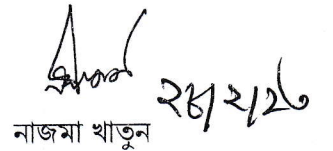 ২৮/২/২৩
নাজমা খাতুন